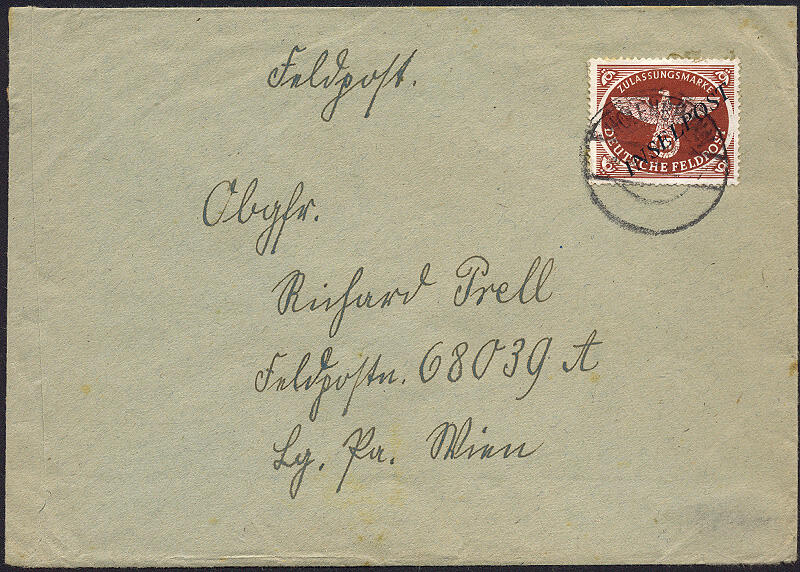 Feldpost.
ZULASSUNGSMARKE
INSELPOST
DEUTSCHE FELDPOST
Obgfr.
Richard Prell
Feldpostn. 68039 A
Lg. Pa. Wien